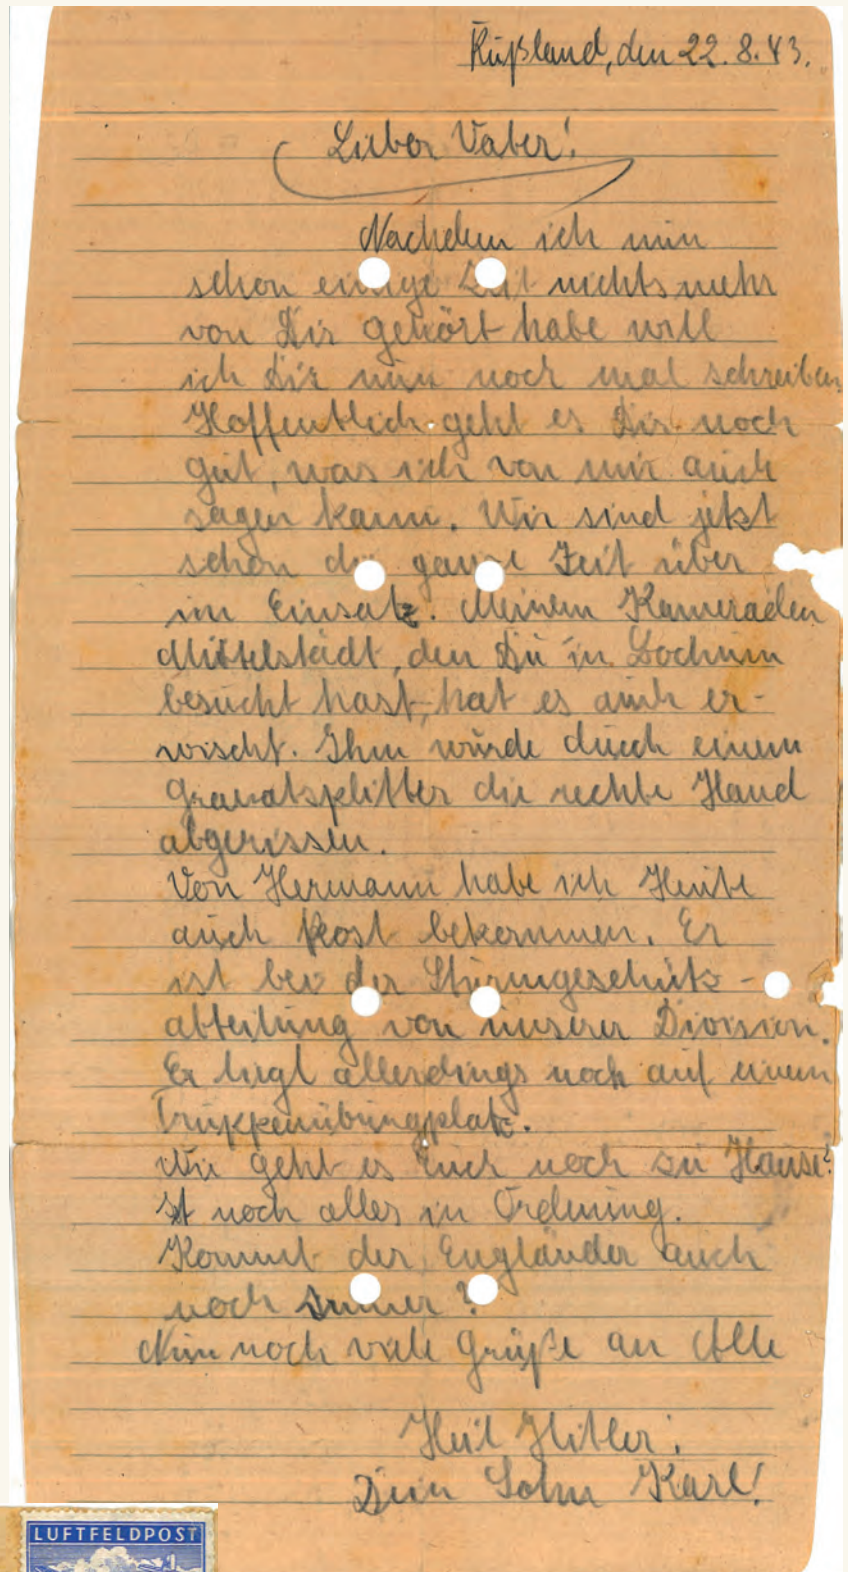 Rußland, den 22.8.43.
Lieber Vater!
Nachdem ich nun
schon einige Zeit nichts mehr
von Dir gehört habe will
ich Dir nun noch mal schreiben.
Hoffentlich geht es Dir noch
gut, was ich von mir auch
sagen kann. Wir sind jetzt
schon die ganze Zeit über
im Einsatz. Meinem Kameraden
Mittelstädt, den Du in Bochum
besucht hast, hat es auch er-
wischt. Ihm wurde durch einem
Granatsplitter die rechte Hand
abgerissen.
Von Hermann habe ich Heute
auch Post bekommen. Er
ist bei der Sturmgeschütz-
abteilung von unserer Division.
Er liegt allerdings noch auf einem
Truppenübungplatz.
Wie geht es Euch noch zu Hause?
Ist noch alles in Ordnung.
Kommt der Engländer auch
noch immer?
Nun noch viele Grüße an Alle
Heil Hitler!
Dein Sohn Karl!
LUFTFELDPOST